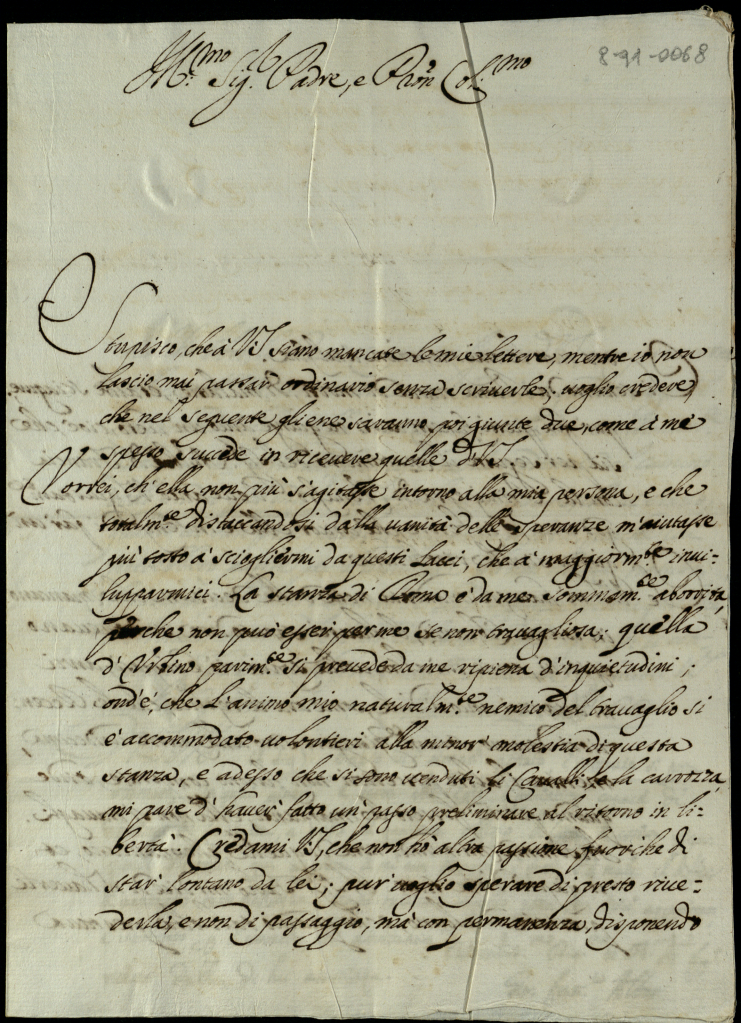 8-91-0068
Ill.mo Sig.r Padre, e Pron Col.mo
Stupisco, che à V.S. siano mancate le mie lettere, mentre io non
lascio mai passar ordinario senza scriverle; voglio credere,
che nel seguente gliene saranno poi giunte due, come à me
spesso succede in ricevere quelle di V.S.
Vorrei, ch'ella non più s'agitasse intorno alla mia persona, e che
totalm.te distaccandosi dalla vanità delle speranze m'aiutasse
più tosto à sciogliermi da questi lacci, che à maggiorm.te invi-
lupparmici. La stanza di Roma è da me sommam.te aborrita
perche non può esser per me se non travagliosa; quella
d'Urbino parim.te si prevede da me ripiena d'inquietudini;
ond'è, che l'animo mio naturalm.te nemico del travaglio si
è accommodato volontieri alla minor molestia di questa
stanza, e adesso che si sono venduti li Cavalli, e la carrozza,
mi pare d'haver fatto un passo preliminare al ritorno in li-
bertà. Credami V.S., che non hò altra passione fuor che di
star lontano da lei; pur voglio sperare di presto rive-
derla, e non di passaggio, mà con permanenza, disponendo